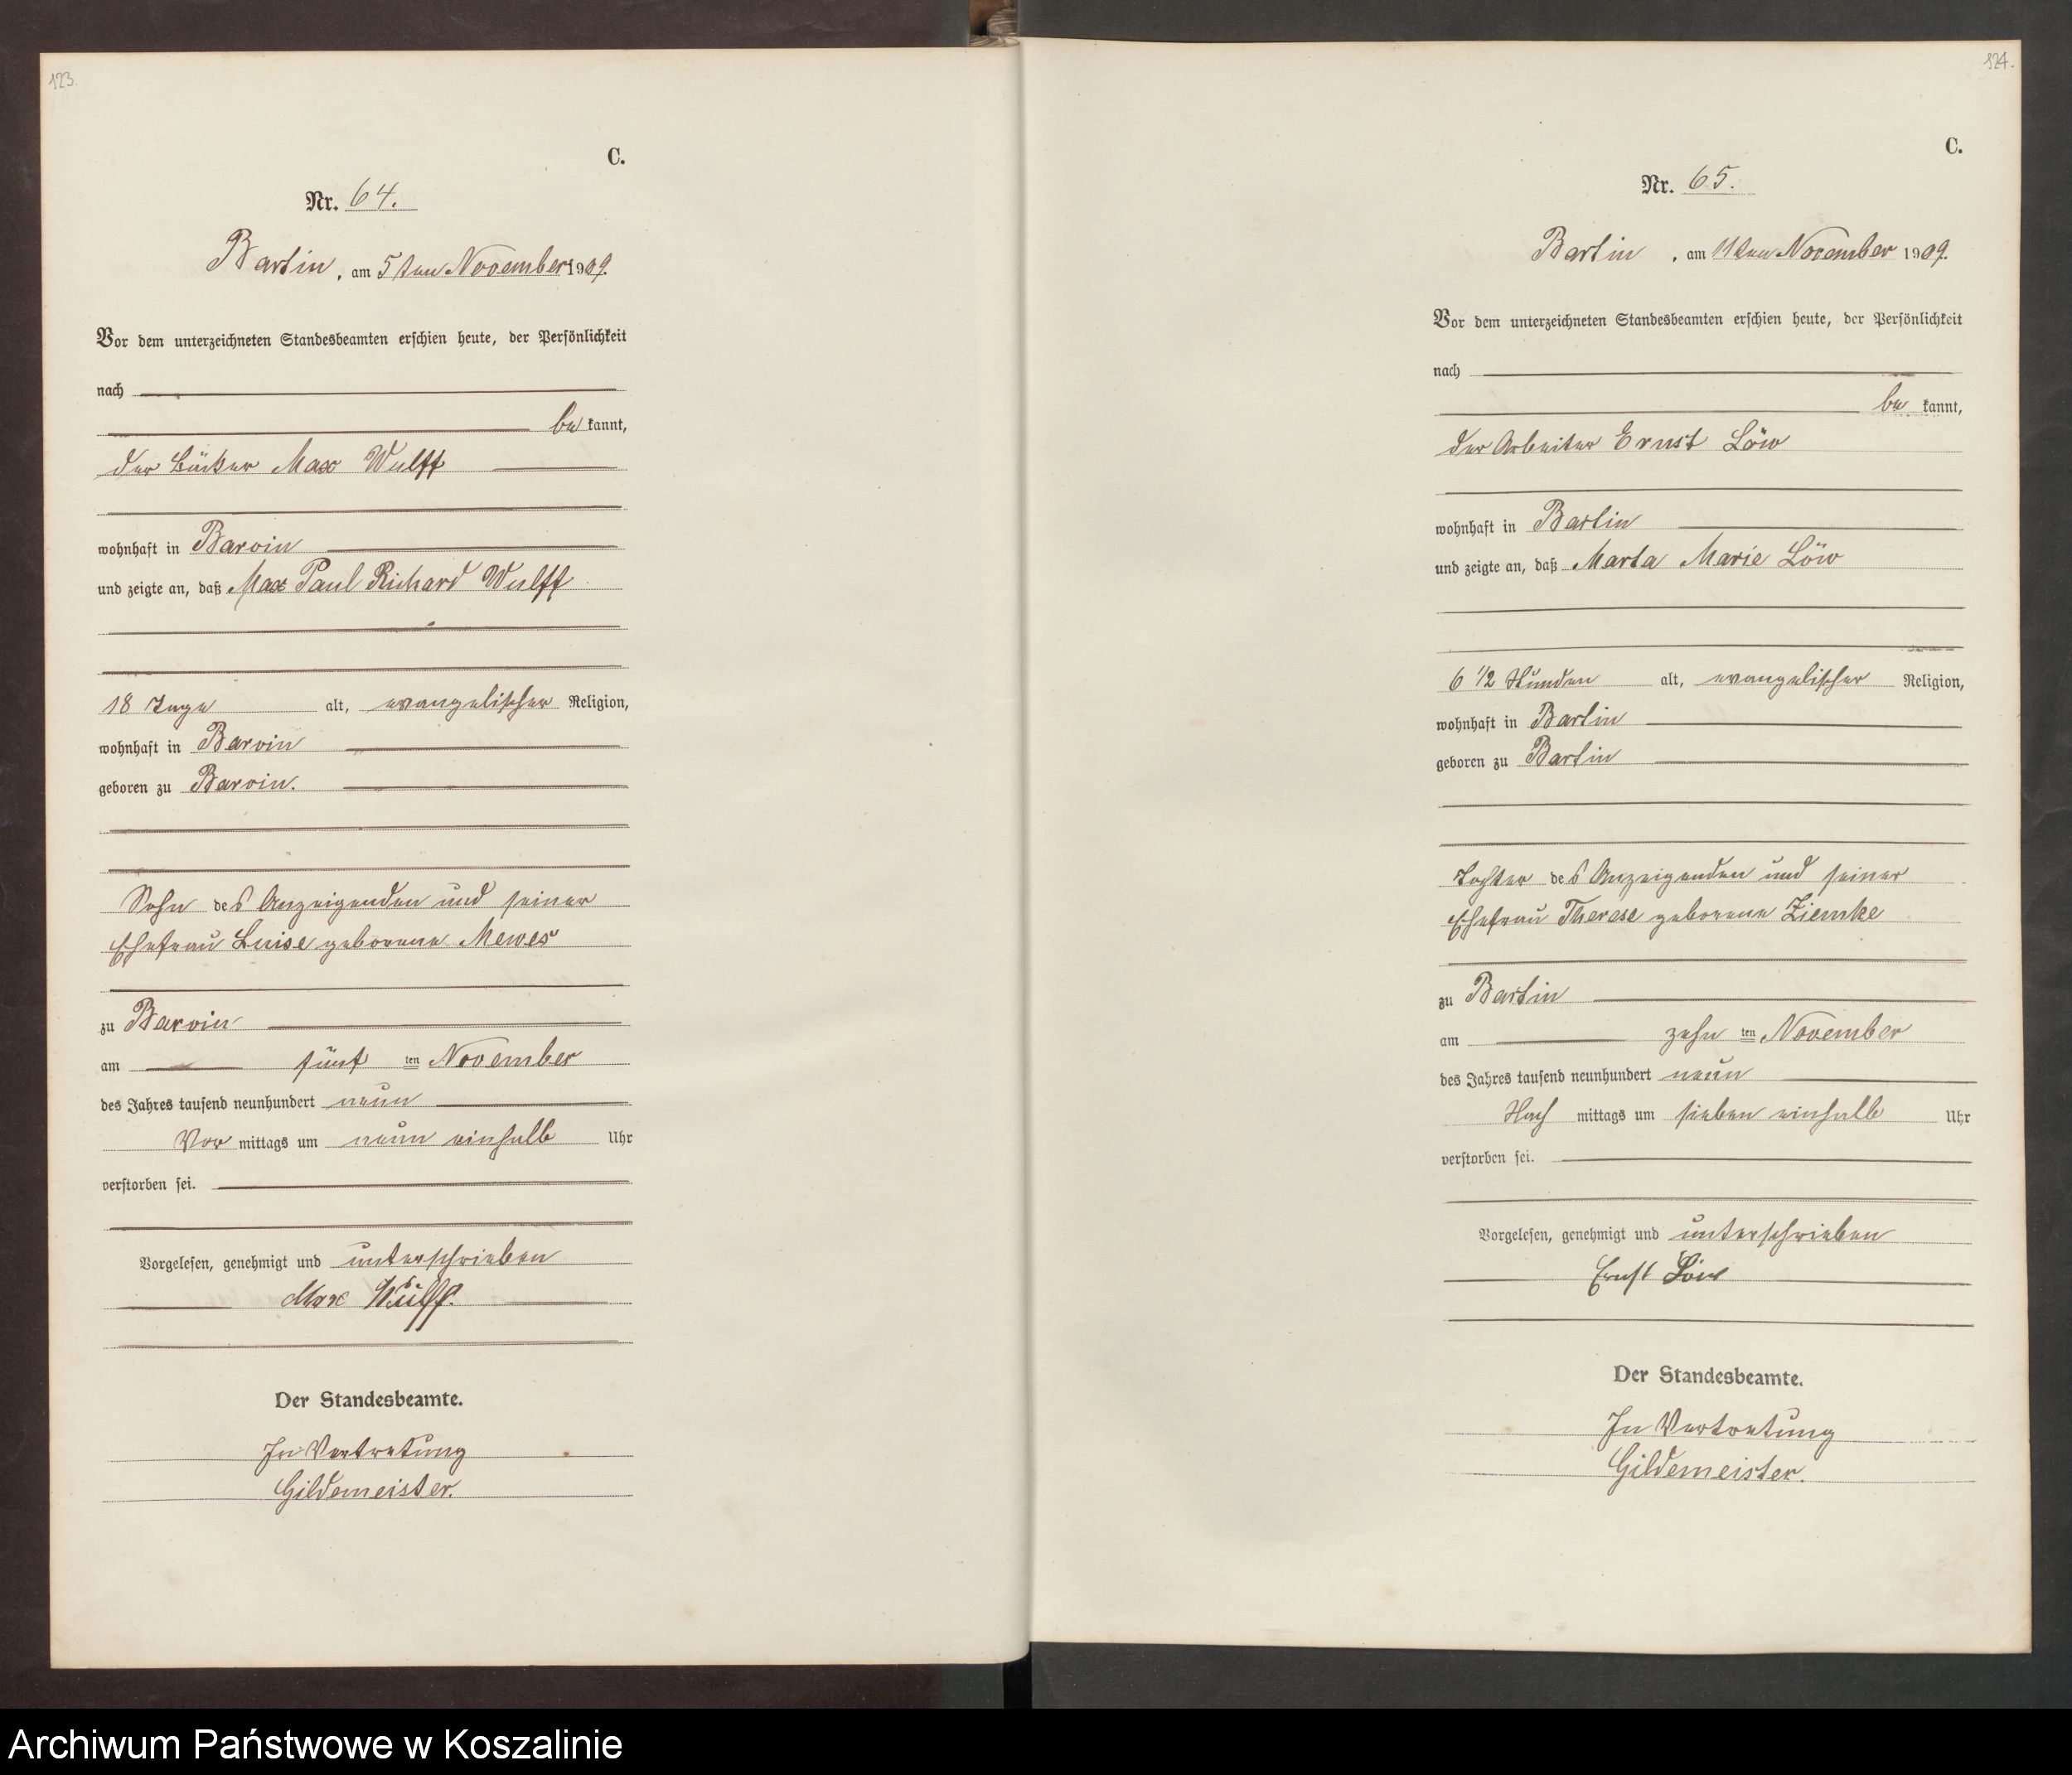 123.
C.
Nr. 64.
Bartin, am 5ten November 1909.
Vor dem unterzeichneten Standesbeamten erschien heute, der Persönlichkeit
nach
be kannt,
der Bäcker Max Wulff
wohnhaft in Barvin
und zeigte an, daß Max Paul Richard Wulff
18 Tage alt, evangelischer Religion,
wohnhaft in Barvin
geboren zu Barvin.
Sohn des Anzeigenden und seiner
Ehefrau Luise geborene Mewes
zu Barvin
am fünf ten November
des Jahres tausend neunhundert neun
Vor mittags um neun einhalb Uhr
verstorben sei.
Vorgelesen, genehmigt und unterschrieben
Max Wulff.
Der Standesbeamte.
In Vertretung
Gildemeister.
124.
C.
Nr. 65.
Bartin, am 11ten November 1909.
Vor dem unterzeichneten Standesbeamten erschien heute, der Persönlichkeit
nach
be kannt,
der Arbeiter Ernst Löw
wohnhaft in Bartin
und zeigte an, daß Marta Marie Löw
6 1/2 Stunden alt, evangelischer Religion,
wohnhaft in Bartin
geboren zu Bartin
Tochter des Anzeigenden und seiner
Ehefrau Therese geborene Ziemke
zu Bartin
am zehn ten November
des Jahres tausend neunhundert neun
Nach mittags um sieben einhalb Uhr
verstorben sei.
Vorgelesen, genehmigt und unterschrieben
Ernst Löw
Der Standesbeamte.
In Vertretung
Gildemeister.
Archiwum Państwowe w Koszalinie